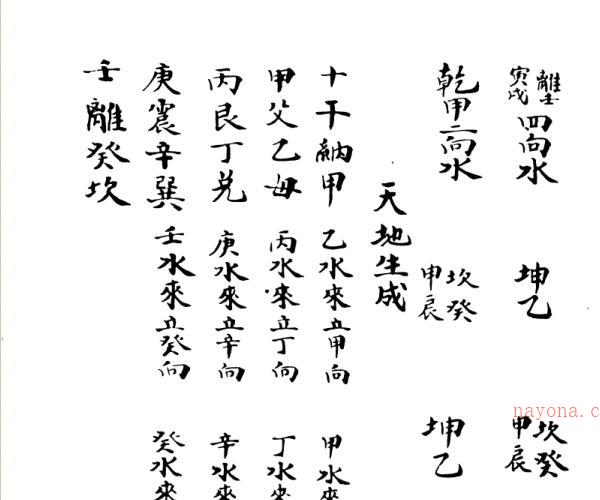 離壬寅戌四向水 坤乙 坎癸申辰
乾甲二向水 坎癸申辰 坤乙
天地生成
十干納甲 乙水來立甲向 甲水來
甲父乙母 丙水來立丁向 丁水來
丙艮丁兌 庚水來立辛向 辛水來
庚震辛巽 壬水來立癸向 癸水來
壬離癸坎
nayona.c